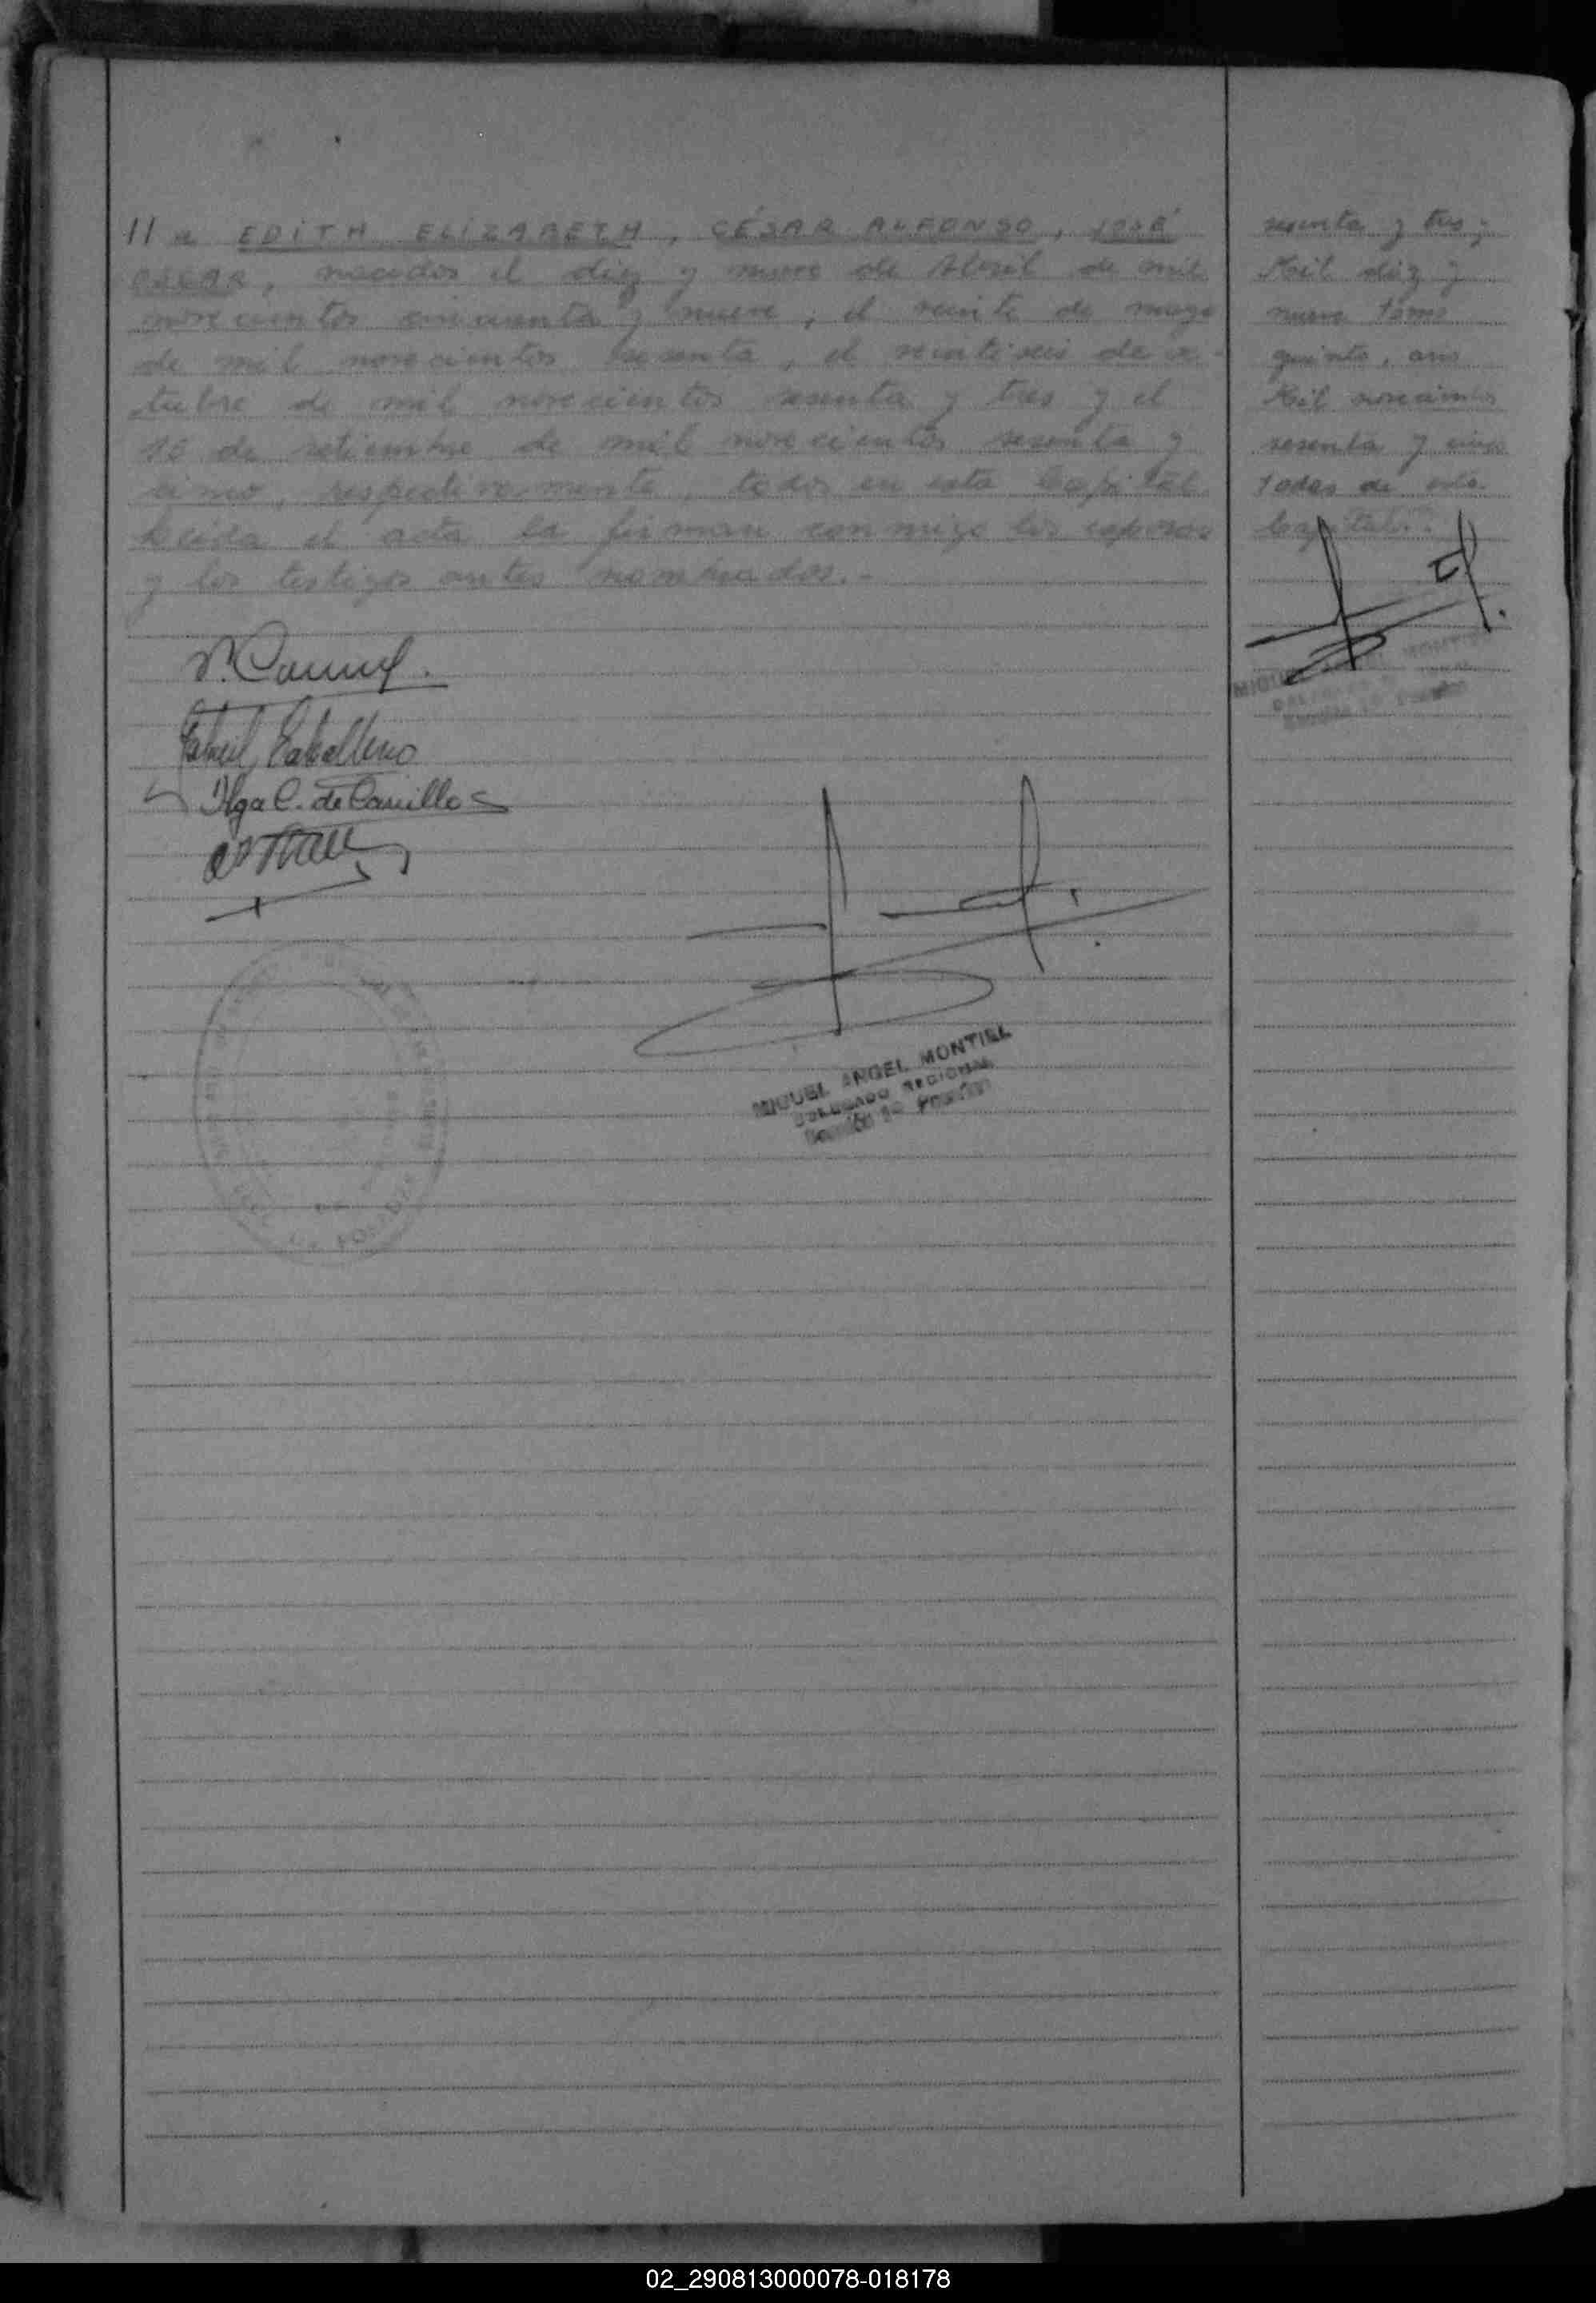 11 a EDITH ELIZABETH, CÉSAR ALFONSO, JOSÉ
OSCAR, nacidos el diez y nueve de Abril de mil
novecientos cincuenta y nueve, el veinte de mayo
de mil novecientos sesenta, el veintiseis de oc-
tubre de mil novecientos sesenta y tres y el
10 de setiembre de mil novecientos sesenta y
cinco, respectivamente, todos en esta Capital
Leida el acta la firman conmigo los esposos
y los testigos antes nombrados.-
Olga C. de Carrillo
MIGUEL ANGEL MONTIEL
DELEGADO REGIONAL
sesenta y tres;
Mil diez y
nueve tomo
quinto, año
Mil novecientos
sesenta y cinco
todas de esta
Capital.-
MIGUEL ANGEL MONTIEL
02_290813000078-018178